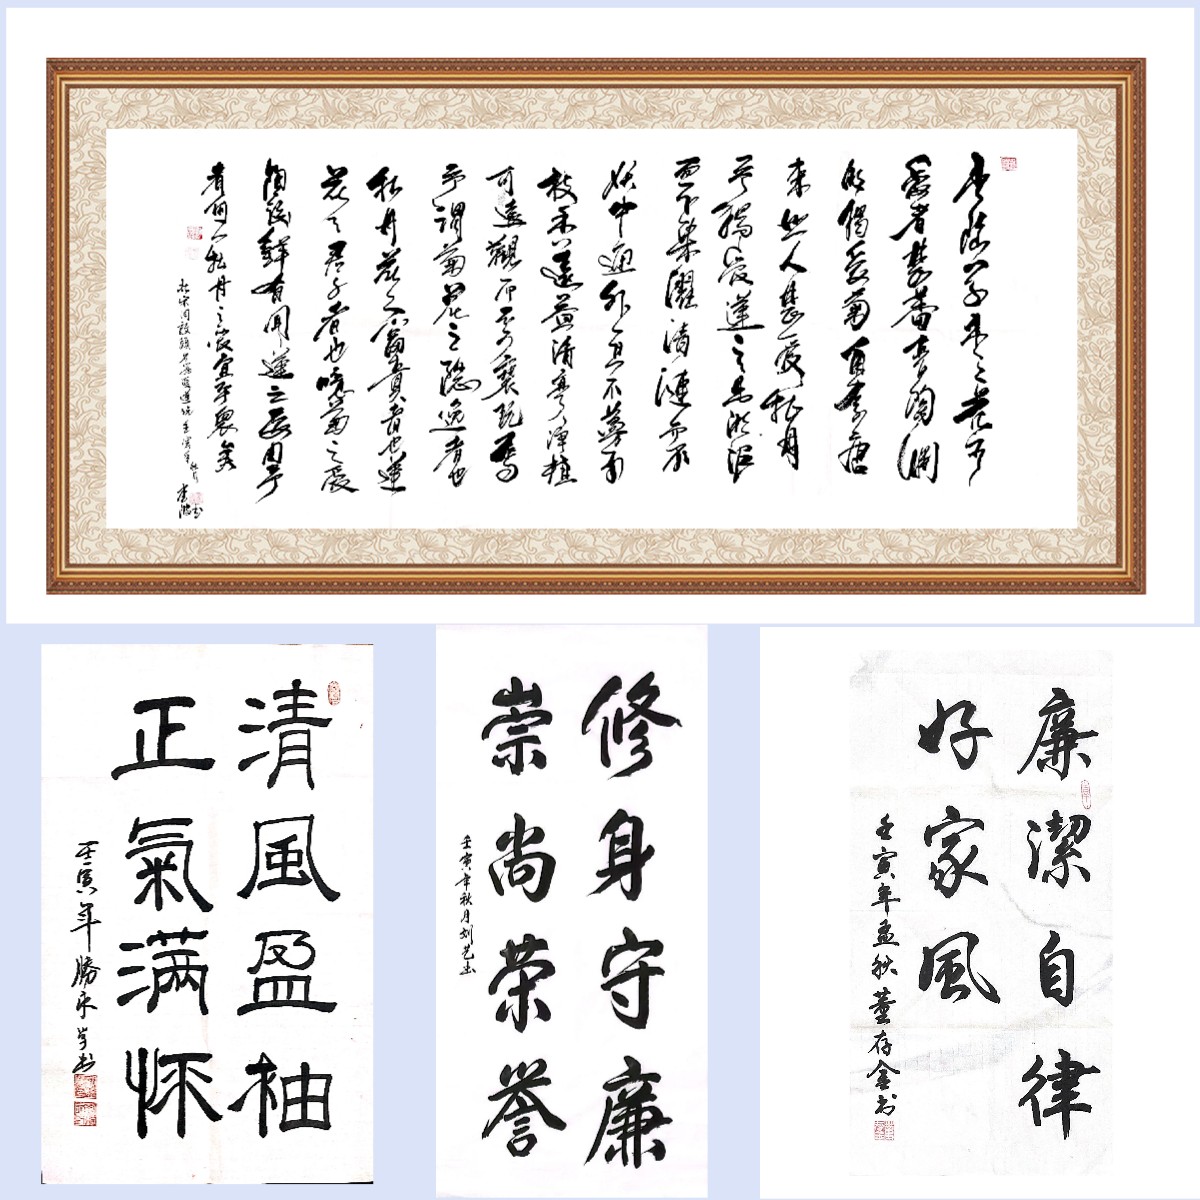 水陸草木之花可
愛者甚蕃晋陶淵
明獨愛菊自李唐
来世人甚愛牡丹
予獨愛蓮之出淤泥
而不染濯清漣而不
妖中通外直不蔓不
枝香遠益清亭亭淨植
可遠觀而不可褻玩焉
予謂菊花之隐逸者也
牡丹花之富貴者也蓮
花之君子者也噫菊之愛
陶後鮮有聞蓮之愛同予
者何人牡丹之愛宜乎衆矣
清風盈袖
正氣满怀
壬寅年
修身守廉
崇尚荣誉
壬寅年秋月刘艺书
廉潔自律
好家風
壬寅年孟秋董存金书